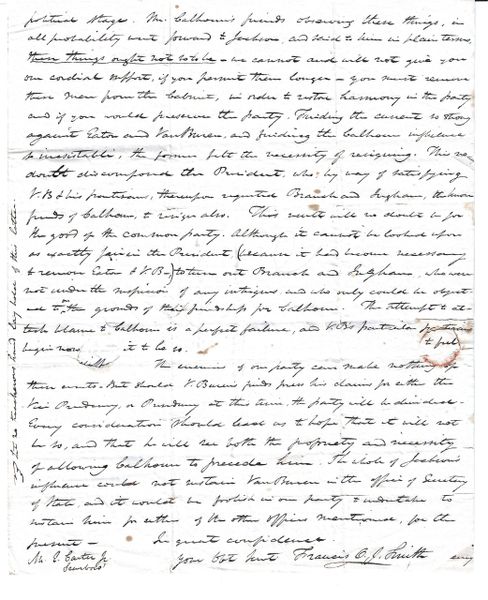 political Stage. Mr. Calhoun's friends observing these things, in
all probability went forward to Jackson, and said to him in plain terms,
these things ought not to be - we cannot and will not give you
our cordial support, if you permit them longer - you must remove
these men from the Cabinet, in order to restore harmony in the party
and if you would preserve the party. Finding the current so strong
against Eaton and Van Buren, and finding the Calhoun influence
so irresistible, the former felt the necessity of resigning. This no
doubt discomposed the President, who, by way of satisfying
V.B & his partisans, thereupon requested Branch and Ingham, the
friends of Calhoun, to resign also. This result will no doubt be for
the good of the common party. Although it cannot be looked upon
as exactly fair in the President (because it had become necessary
to remove Eaton & V.B.) to turn out Branch and Ingham, who were
not under the suspicion of any intrigue and who only could be object-
ed to on the grounds of their friendship for Calhoun. The attempt to at-
tach blame to Calhoun is a perfect failure, and VB's particular partisans
begin now to feel it to be so.
The enemies of our party can make nothing of
these events. But should V. Buren's friends press his claims for either the
Vice Presidency, or Presidency at this time, the party will be divided.
Every consideration should lead us to hope that it will not
be so, and that he will see both the propriety and necessity
of allowing Calhoun to precede him. The whole of Jackson's
influence could not sustain Van Buren in the office of Secretary
of State, and it would be foolish in our party to undertake to
sustain him for either of the other offices mentioned, for the
present -
In great confidence
Mr. E. Carter Jr.
Your Obt Servt Francis O. J. Smith
Let no treacherous hand lay hold of this letter.